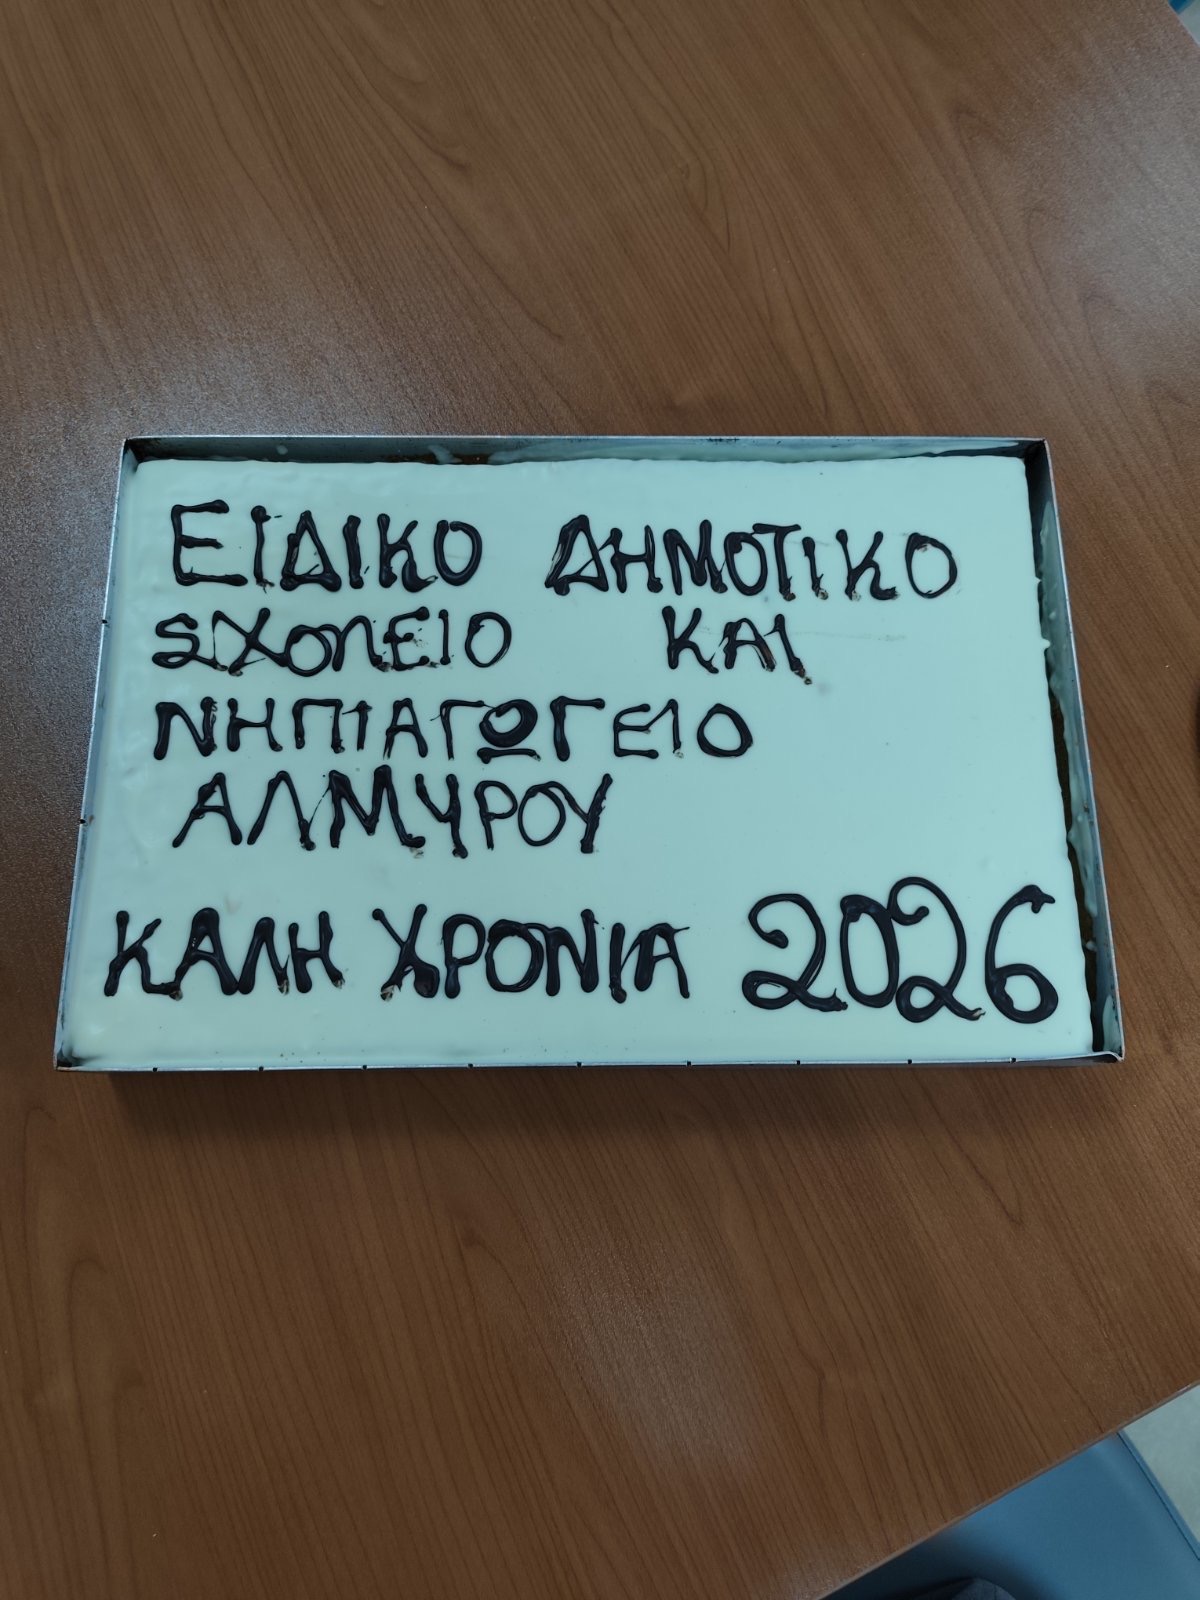 ΕΙΔΙΚΟ ΔΗΜΟΤΙΚΟ
ΣΧΟΛΕΙΟ ΚΑΙ
ΝΗΠΙΑΓΩΓΕΙΟ
ΑΛΜΥΡΟΥ
ΚΑΛΗ ΧΡΟΝΙΑ 2026